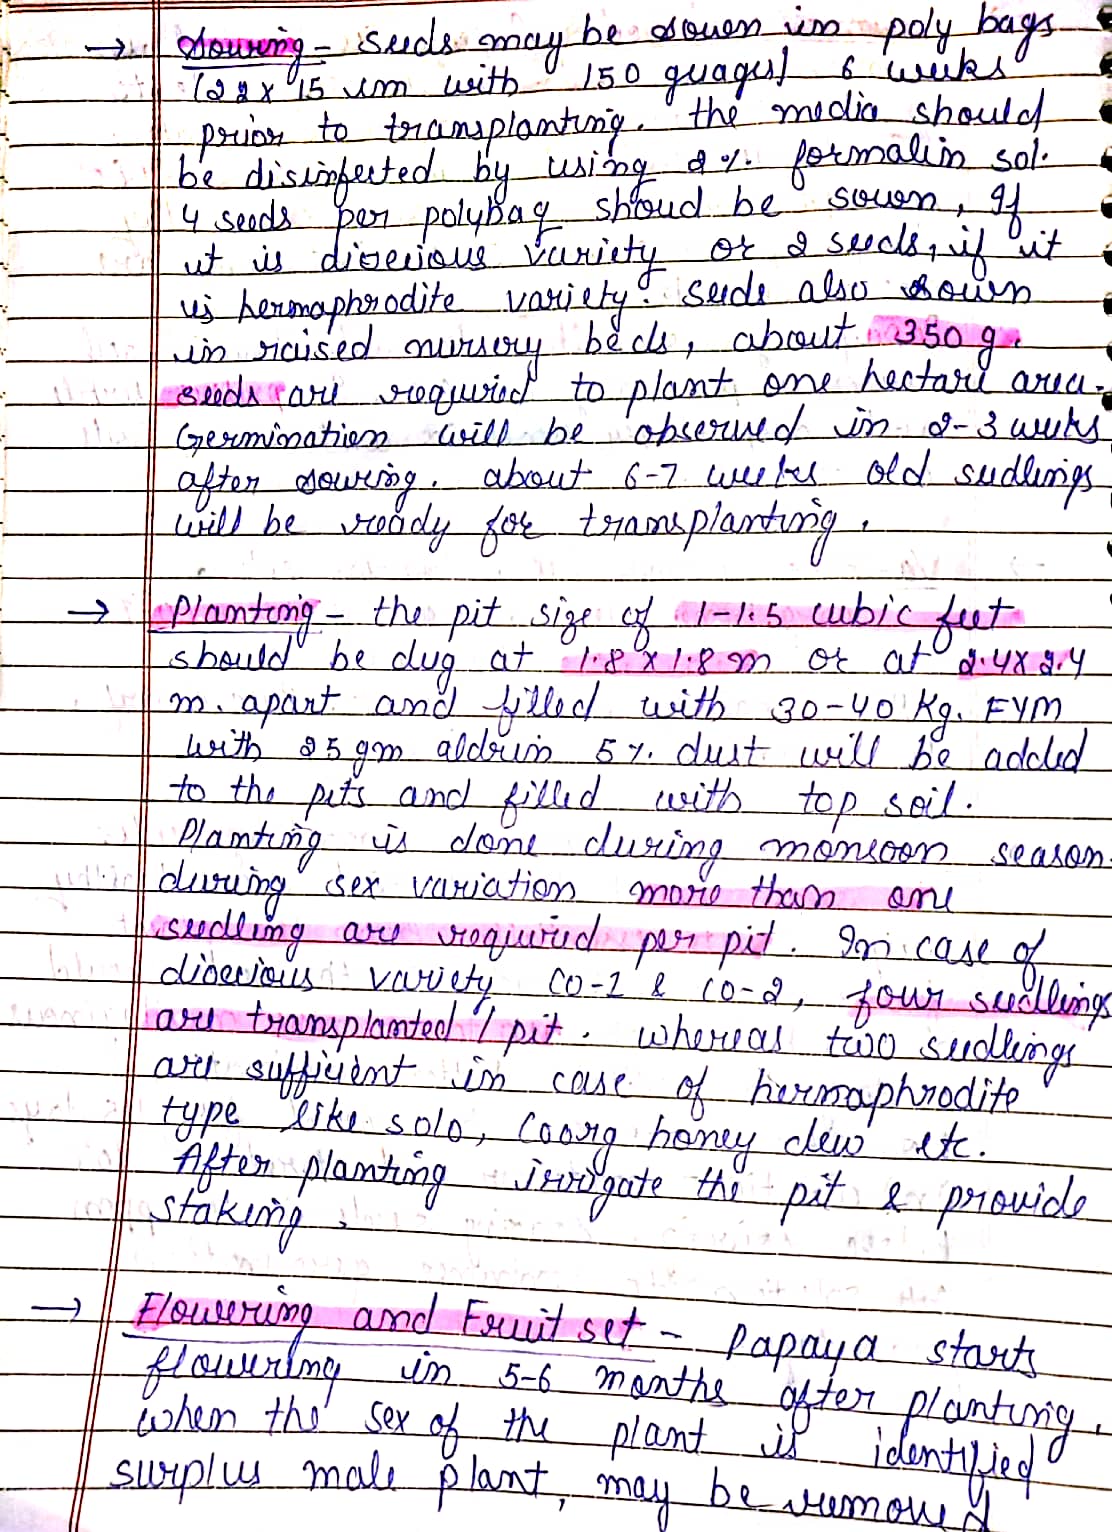 → Sowing - Seeds may be sown in poly bags
(22 x 15 cm with 150 guages) 6 weeks
prior to transplanting. the media should
be disinfected by using 2 %. formalin sol.
4 seeds per polybag shoud be sown, If
it is dioecious variety or 2 seeds, if it
is hermaphrodite variety. Seeds also sown
in raised nursery beds, about 350 g.
seeds are required to plant one hectare area.
Germination will be observed in 2-3 weeks
after sowing. about 6-7 weeks old sedlings
will be ready for transplanting.
→ Planting - the pit size of 1-1.5 cubic feet
should be dug at 1.8 x 1.8 m or at 2.4x2.4
m. apart and filled with 30-40 Kg. FYM
with 25 gm aldrin 5 %. dust will be added
to the pits and filled with top soil.
Planting is done during monsoon season.
during sex variation more than one
seedling are required per pit. In case of
dioecious variety CO-1 & CO-2, four seedlings
are transplanted / pit. whereas two sedlings
are sufficient in case of hermaphrodite
type like solo, Coorg honey dew etc.
After planting irrigate the pit & provide
staking.
→ Flowering and Fruit set - Papaya starts
flowering in 5-6 months after planting.
when the sex of the plant is identified
surplus male plant, may be removed